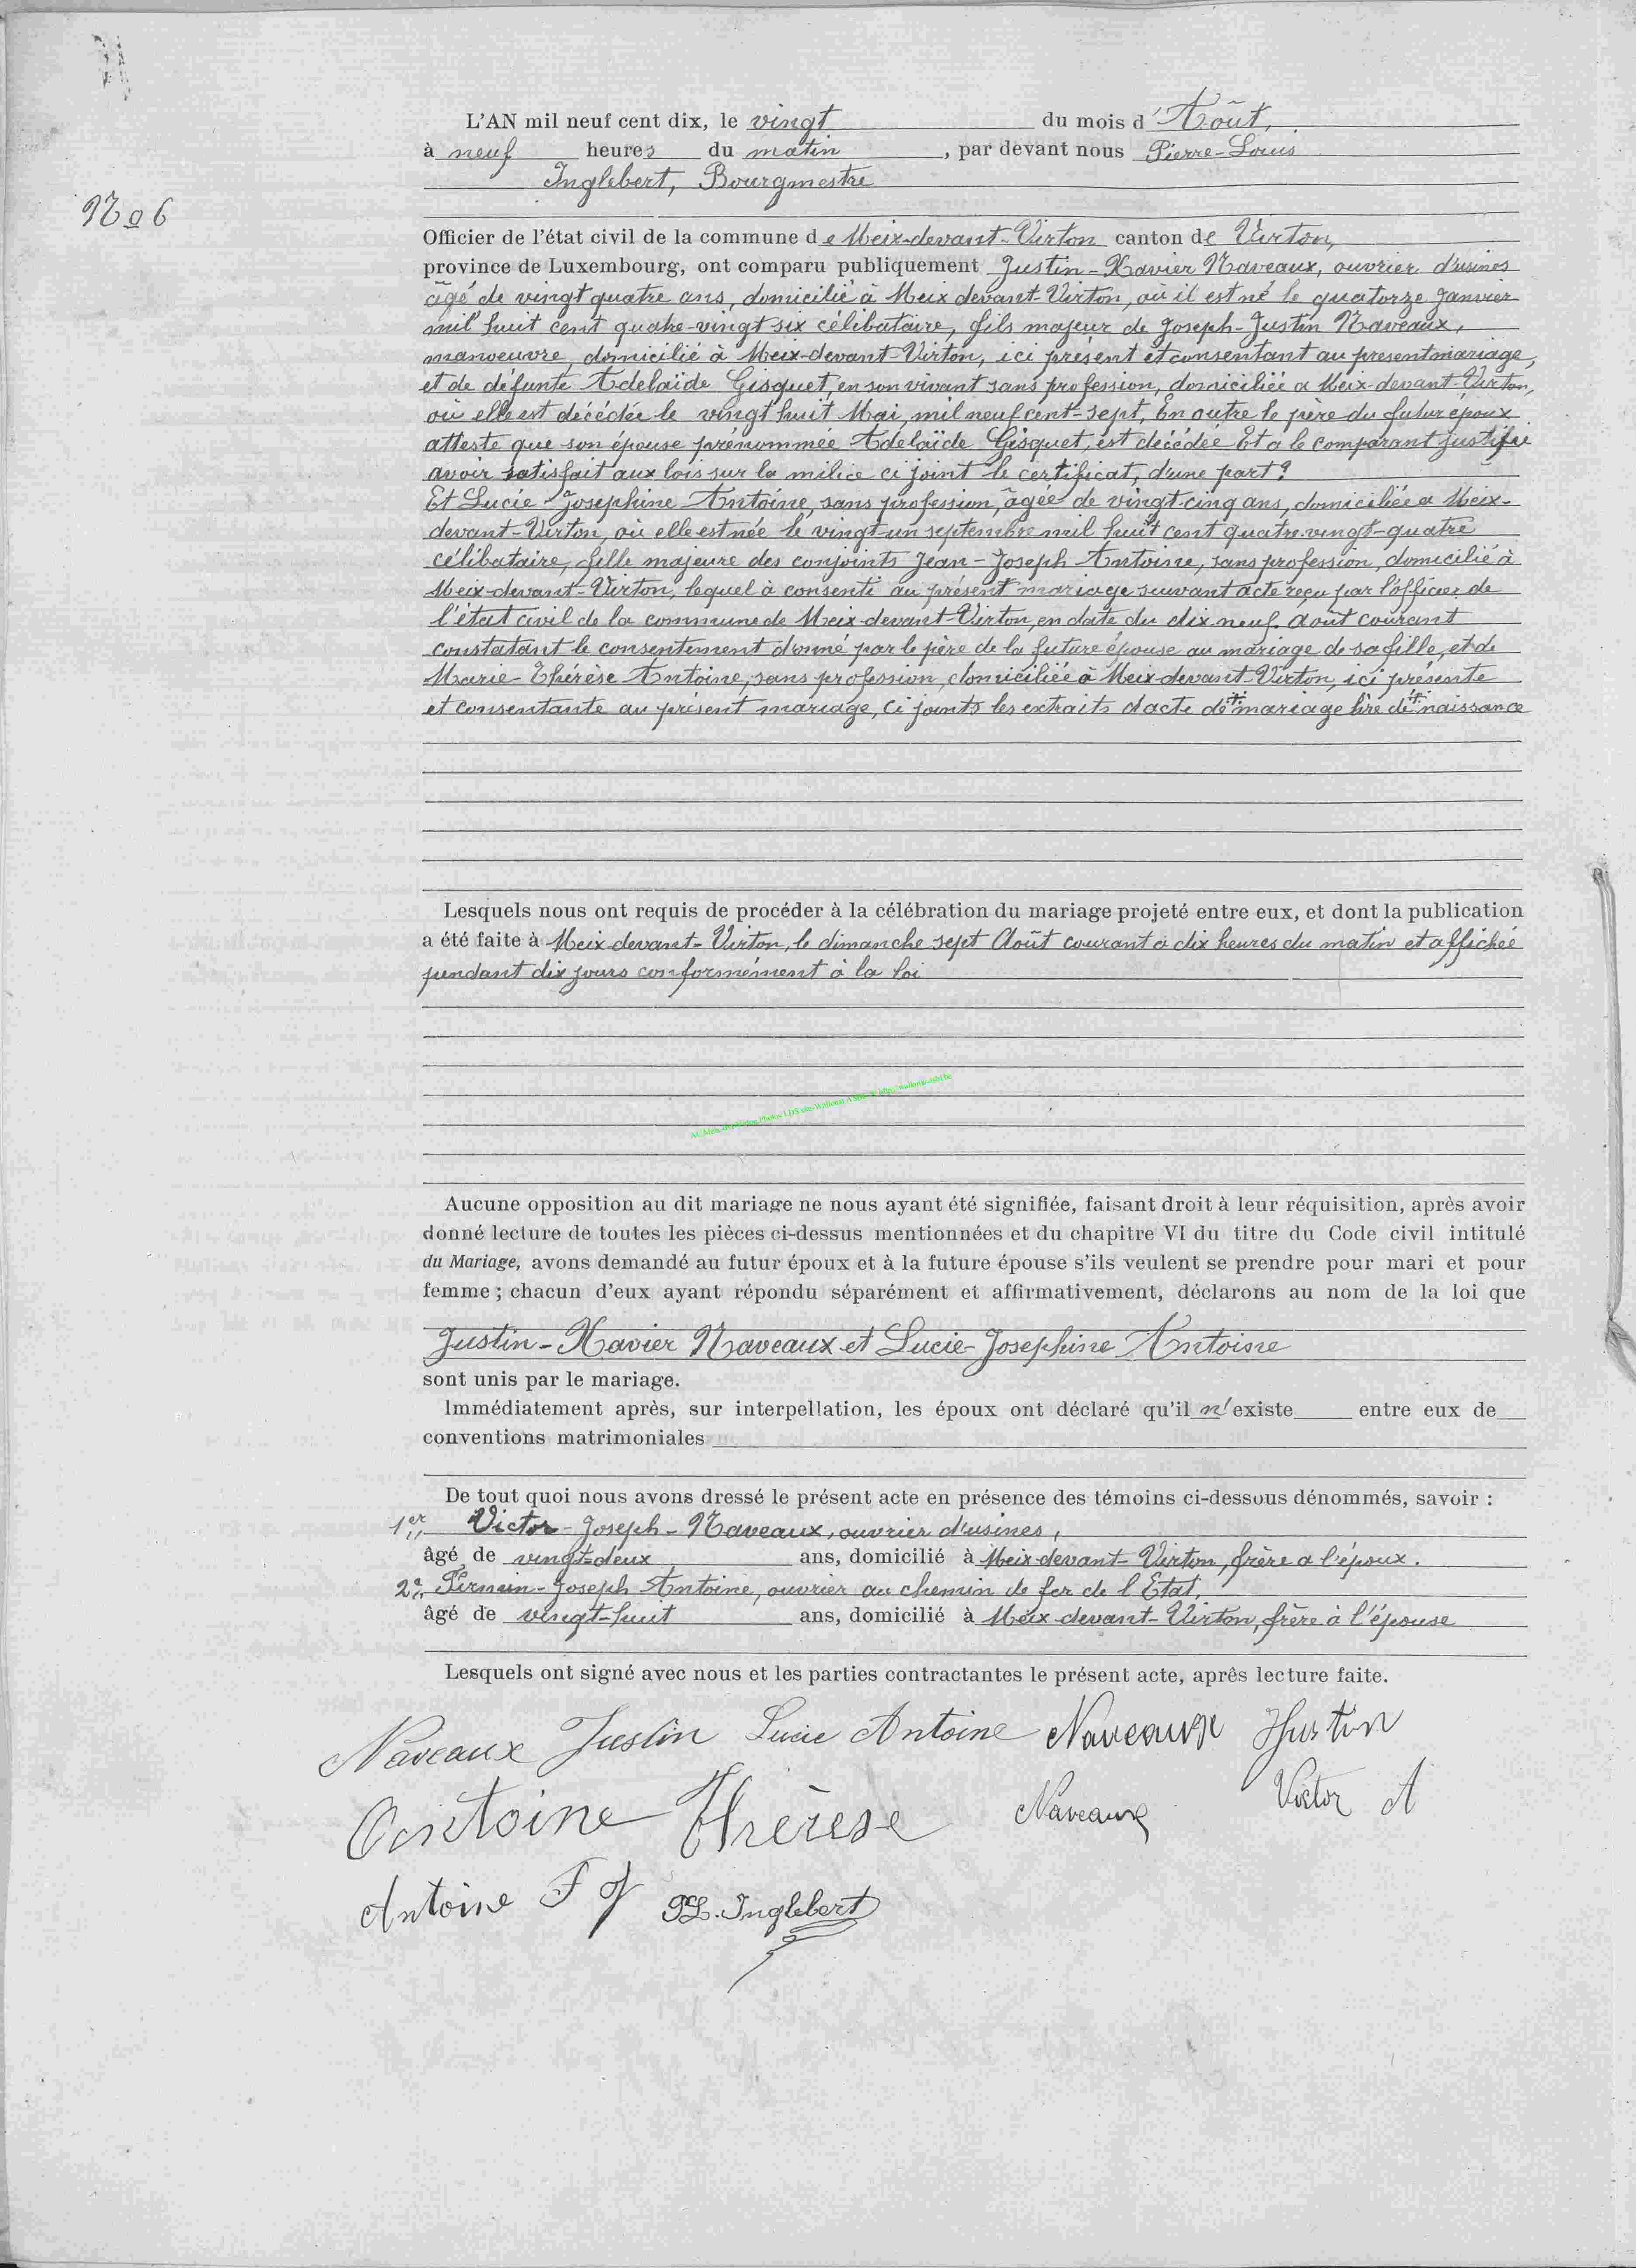 L'AN mil neuf cent dix, le vingt du mois d'Août,
à neuf heures du matin, par devant nous Pierre-Louis
Inglebert, Bourgmestre
No 6
Officier de l'état civil de la commune de Meix-devant-Virton canton de Virton,
province de Luxembourg, ont comparu publiquement Justin-Xavier Naveaux, ouvrier d'usines
âgé de vingt quatre ans, domicilié à Meix devant-Virton, où il est né le quatorze Janvier
mil huit cent quatre-vingt six célibataire, fils majeur de Joseph-Justin Naveaux,
manoeuvre, domicilié à Meix-devant-Virton, ici présent et consentant au present mariage,
et de défunte Adelaïde Gisquet, en son vivant sans profession, domiciliée a Meix-devant-Virton,
où elle est décédée le vingt huit Mai, mil neuf cent-sept, En outre le père du futur époux
atteste que son épouse prénommée Adelaïde Gisquet, est décédée Et a le comparant justifié
avoir satisfait aux lois sur la milice ci joint le certificat, d'une part?
Et Lucie-Josephine Antoine, sans profession, âgée de vingt-cinq ans, domiciliée a Meix-
devant-Virton, où elle est née le vingt-un septembre mil huit cent quatre-vingt-quatre
célibataire, fille majeure des conjoints Jean-Joseph Antoine, sans profession, domicilié à
Meix-devant-Virton, lequel à consenti au présent mariage suivant acte reçu par l'officier de
l'état civil de la commune de Meix-devant-Virton, en date du dix-neuf Août courant
constatant le consentement donné par le père de la future épouse au mariage de sa fille, et de
Marie-Thérèse Antoine, sans profession, domiciliée à Meix-devant-Virton, ici présente
et consentante au présent mariage, Ci joints les extraits d'acte de mariage lire de naissance
Lesquels nous ont requis de procéder à la célébration du mariage projeté entre eux, et dont la publication
a été faite à Meix-devant-Virton, le dimanche sept Août courant à dix heures du matin et affichée
pendant dix jours conformément à la loi
Aucune opposition au dit mariage ne nous ayant été signifiée, faisant droit à leur réquisition, après avoir
donné lecture de toutes les pièces ci-dessus mentionnées et du chapitre VI du titre du Code civil intitulé
du Mariage, avons demandé au futur époux et à la future épouse s'ils veulent se prendre pour mari et pour
femme ; chacun d'eux ayant répondu séparément et affirmativement, déclarons au nom de la loi que
Justin-Xavier Naveaux et Lucie-Josephine Antoine
sont unis par le mariage.
Immédiatement après, sur interpellation, les époux ont déclaré qu'il n'existe entre eux de
conventions matrimoniales
De tout quoi nous avons dressé le présent acte en présence des témoins ci-dessous dénommés, savoir :
1er Victor-Joseph-Naveaux, ouvrier d'usines,
âgé de vingt-deux ans, domicilié à Meix-devant-Virton, frère a l'époux.
2e Firmin-Joseph Antoine, ouvrier au chemin de fer de l'Etat,
âgé de vingt-huit ans, domicilié à Meix-devant-Virton, frère à l'épouse
Lesquels ont signé avec nous et les parties contractantes le présent acte, après lecture faite.
Naveaux Justin Lucie Antoine Naveaux Justin
Antoine Thérèse Naveaux Victor A
Antoine F J PL. Inglebert